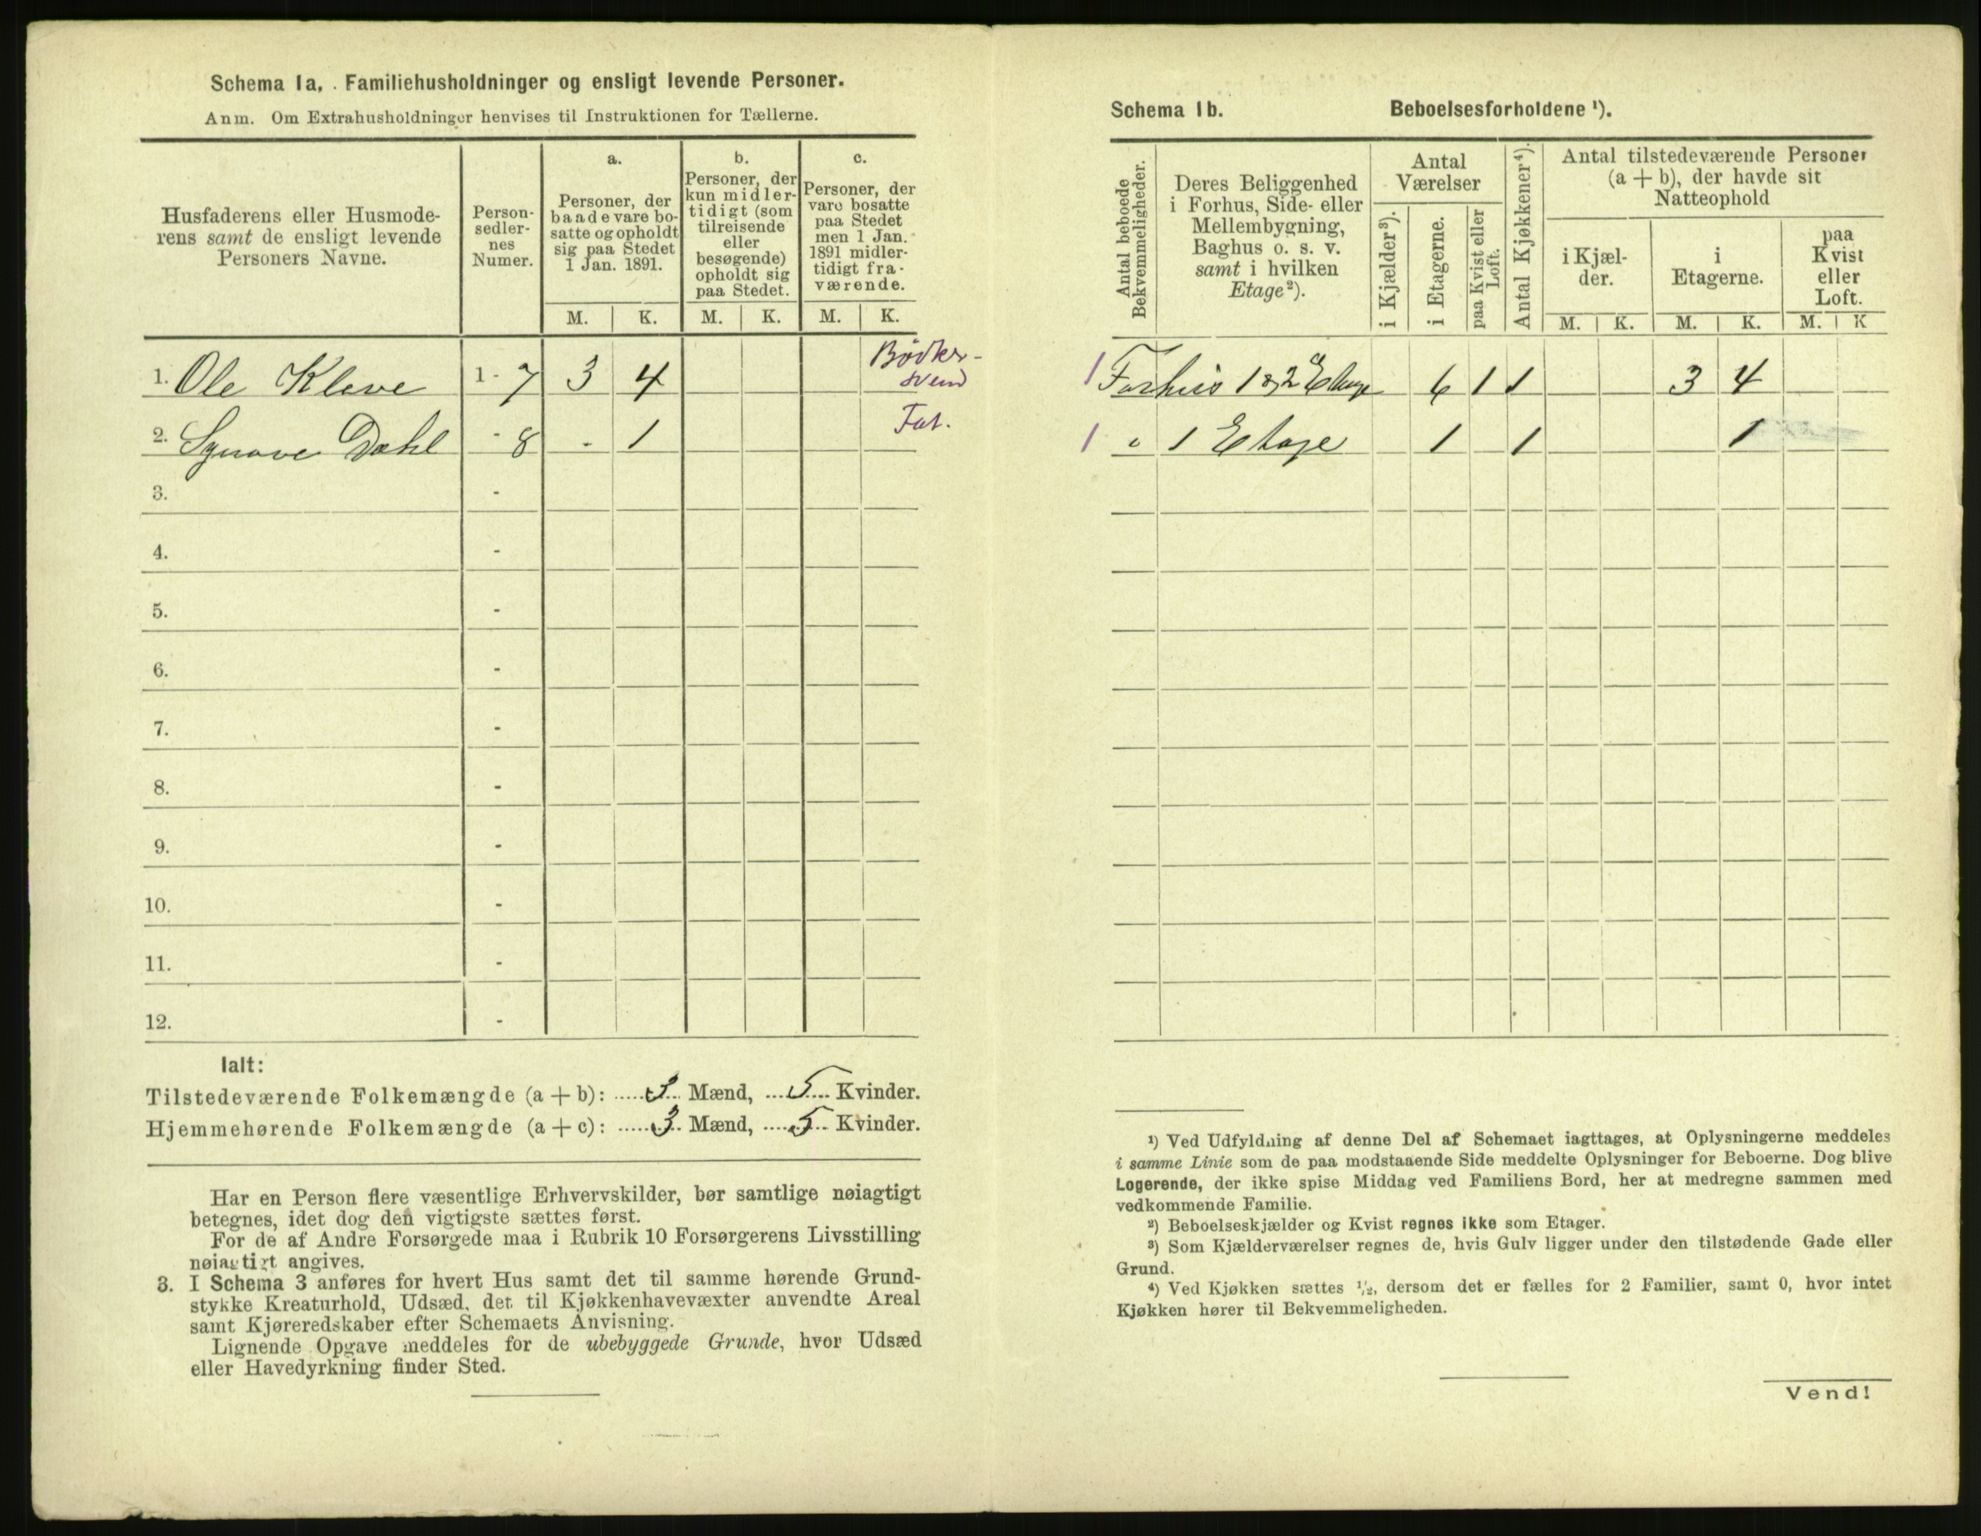 Schema 1a. Familiehusholdninger og ensligt levende Personer.
Anm. Om Extrahusholdninger henvises til Instruktionen for Tællerne.
Husfaderens eller Husmode-
rens samt de ensligt levende
Personers Navne.
Person-
sedler-
nes
Numer.
a.
Personer, der
baade vare bo-
satte og opholdt
sig paa Stedet
1 Jan. 1891.
M. K.
b.
Personer, der
kun midler-
tidigt (som
tilreisende
eller
besøgende)
opholdt sig
paa Stedet.
M. K.
c.
Personer, der
vare bosatte
paa Stedet
men 1 Jan.
1891 midler-
tidigt fra-
værende.
M. K.
1. Ole Kleve 1 - 7 3 4 Bödker-
svend
2. Synove Dahl - 8 - 1 Fat.
3. -
4. -
5. -
6. -
7. -
8. -
9. -
10. -
11. -
12. -
Ialt:
Tilstedeværende Folkemængde (a + b): 3 Mænd, 5 Kvinder.
Hjemmehørende Folkemængde (a + c): 3 Mænd, 5 Kvinder.
Har en Person flere væsentlige Erhvervskilder, bør samtlige nøiagtigt
betegnes, idet dog den vigtigste sættes først.
For de af Andre Forsørgede maa i Rubrik 10 Forsørgerens Livsstilling
nøiagtigt angives.
3. I Schema 3 anføres for hvert Hus samt det til samme hørende Grund-
stykke Kreaturhold, Udsæd, det til Kjøkkenhavevæxter anvendte Areal
samt Kjøreredskaber efter Schemaets Anvisning.
Lignende Opgave meddeles for de ubebyggede Grunde, hvor Udsæd
eller Havedyrkning finder Sted.
Schema 1b. Beboelsesforholdene ¹).
Antal beboede
Bekvemmeligheder.
Deres Beliggenhed
i Forhus, Side- eller
Mellembygning,
Baghus o. s. v.
samt i hvilken
Etage²).
Antal
Værelser
i Kjælder³).
i Etagerne.
paa Kvist eller
Loft.
Antal Kjøkkener⁴).
Antal tilstedeværende Personer
(a + b), der havde sit
Natteophold
i Kjæl-
der.
M. K.
i
Etagerne.
M. K.
paa
Kvist
eller
Loft.
M. K
1 Forhus 1 & 2 Etage 6 1 1 3 4
1 " 1 Etage 1 1 1
¹) Ved Udfyldning af denne Del af Schemaet iagttages, at Oplysningerne meddeles
i samme Linie som de paa modstaaende Side meddelte Oplysninger for Beboerne. Dog blive
Logerende, der ikke spise Middag ved Familiens Bord, her at medregne sammen med
vedkommende Familie.
²) Beboelseskjælder og Kvist regnes ikke som Etager.
³) Som Kjælderværelser regnes de, hvis Gulv ligger under den tilstødende Gade eller
Grund.
⁴) Ved Kjøkken sættes ½, dersom det er fælles for 2 Familier, samt 0, hvor intet
Kjøkken hører til Bekvemmeligheden.
Vend!